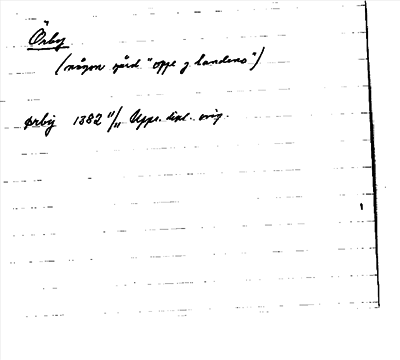 Örby
(någon gård "oppe j landeno")
ørby 1382 11/11 Upps. dipl. orig.